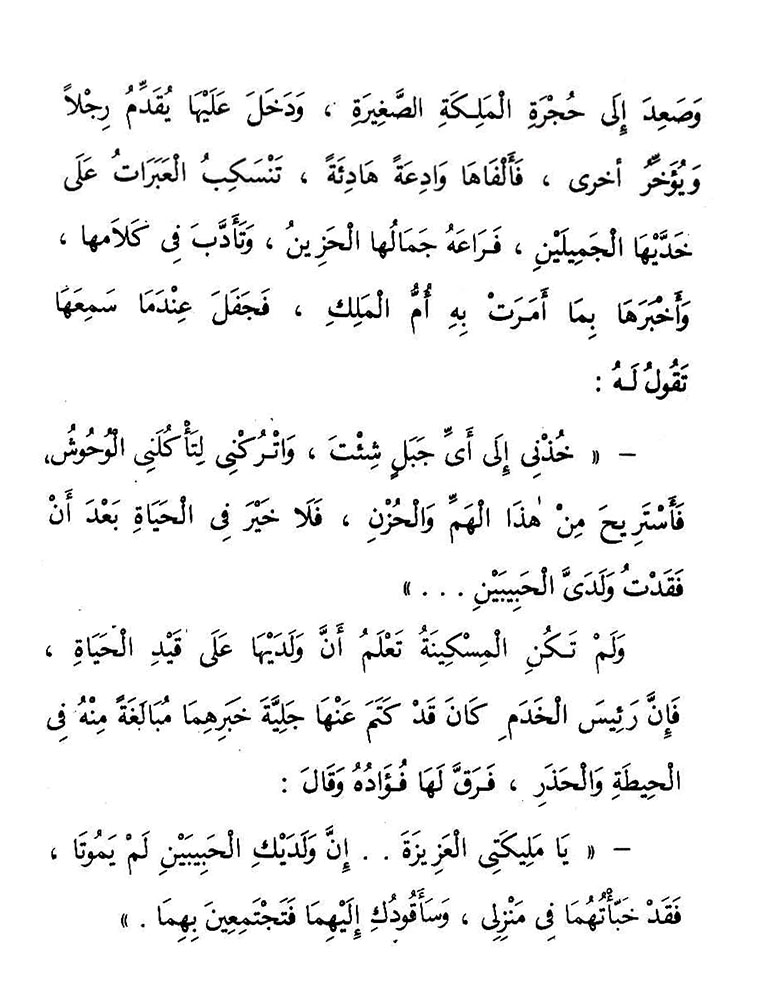 وَصَعِدَ إِلَى حُجْرَةِ الْمَلِكَةِ الصَّغِيرَةِ ، وَدَخَلَ عَلَيْهَا يُقَدِّمُ رِجْلاً
وَيُؤَخِّرُ أخرى ، فَأَلْفَاهَا وَادِعَةً هَادِئَةً ، تَنْسَكِبُ الْعَبَرَاتُ عَلَى
خَدَّيْهَا الْجَمِيلَيْنِ ، فَرَاعَهُ جَمَالُها الْحَزِينُ ، وَتَأَدَّبَ فِى كَلَامها ،
وَأَخْبَرَهَا بِمَا أَمَرَتْ بِهِ أُمُّ الْمَلِكِ ، فَجَفَلَ عِنْدَمَا سَمِعَهَا
تَقُولُ لَهُ :
– « خُذْنِى إِلَى أَىِّ جَبَلٍ شِئْتَ ، وَاتْرُكْنِى لِتَأْكُلَنِى الْوُحُوشُ،
فَأَسْتَرِيحَ مِنْ هٰذَا الْهَمِّ وَالْحُزْنِ ، فَلَا خَيْرَ فِى الْحَيَاةِ بَعْدَ أَنْ
فَقَدْتُ وَلَدَىَّ الْحَبِيبَيْنِ . . . »
وَلَمْ تَكُنِ الْمِسْكِينَةُ تَعْلَمُ أَنَّ وَلَدَيْهَا عَلَى قَيْدِ الْحَيَاةِ ،
فَإِنَّ رَئِيسَ الْخَدَمِ كَانَ قَدْ كَتَمَ عَنْهَا جَلِيَّةَ خَبَرِهِمَا مُبَالَغَةً مِنْهُ فِى
الْحِيطَةِ وَالْحَذَرِ ، فَرَقَّ لَهَا فُؤَادُهُ وَقَالَ :
– « يَا مَلِيكَتِى الْعَزِيزَةَ . . إِنَّ وَلَدَيْكِ الْحَبِيبَيْنِ لَمْ يَمُوتَا ،
فَقَدْ خَبَّأْتُهُمَا فِى مَنْزِلِى ، وَسَأَقُودُكِ إِلَيْهِمَا فَتَجْتَمِعِينَ بِهِمَا . »